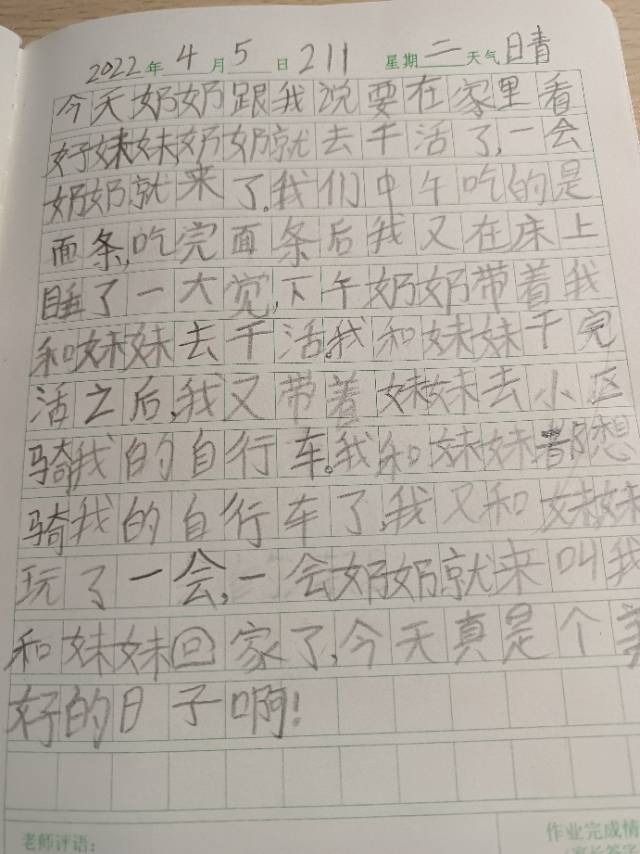 2022年4月5日 211 星期二天气日青
今天奶奶跟我说要在家里看
好妹妹奶奶就去干活了,一会
奶奶就来了.我们中午吃的是
面条,吃完面条后我又在床上
睡了一大觉,下午奶奶带着我
和妹妹去干活.我和妹妹干完
活之后,我又带着妹妹去小区
骑我的自行车。我和妹妹都想
骑我的自行车了,我又和妹妹
玩了一会,一会奶奶就来叫我
和妹妹回家了,今天真是个美
好的日子啊!
老师评语:
作业完成情